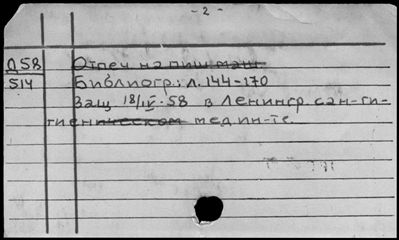 - 2 -
Д58 Отпеч на пиш маш.
514 Библиогр.: л. 144-170
Защ 18/IV-58 в Ленингр. сан-ги-
гиеническом медин-те.